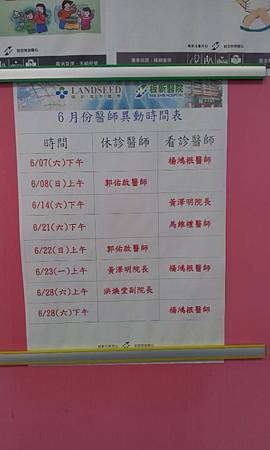 LANDSEED
板新醫院
BAN SHIN HOSPITAL
6月份醫師異動時間表
時間 休診醫師 看診醫師
6/07(六)下午 楊鴻根醫師
6/08(日)上午 郭佑啟醫師
6/14(六)下午 黃澤明院長
6/21(六)下午 馬維樓醫師
6/22(日)上午 郭佑啟醫師
6/23(一)上午 黃澤明院長 楊鴻根醫師
6/28(六)上午 洪煥堂副院長
6/28(六)下午 楊鴻根醫師